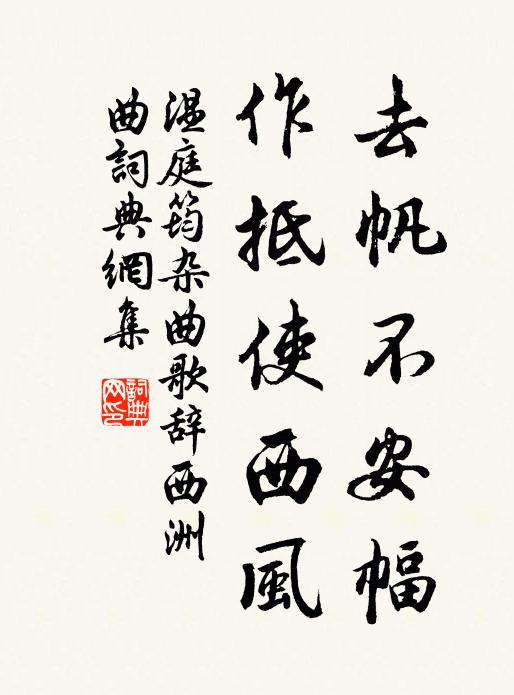 去帆不安幅
作抵使西風
温庭筠杂曲歌辞西洲
曲詞典網集
詞典网印